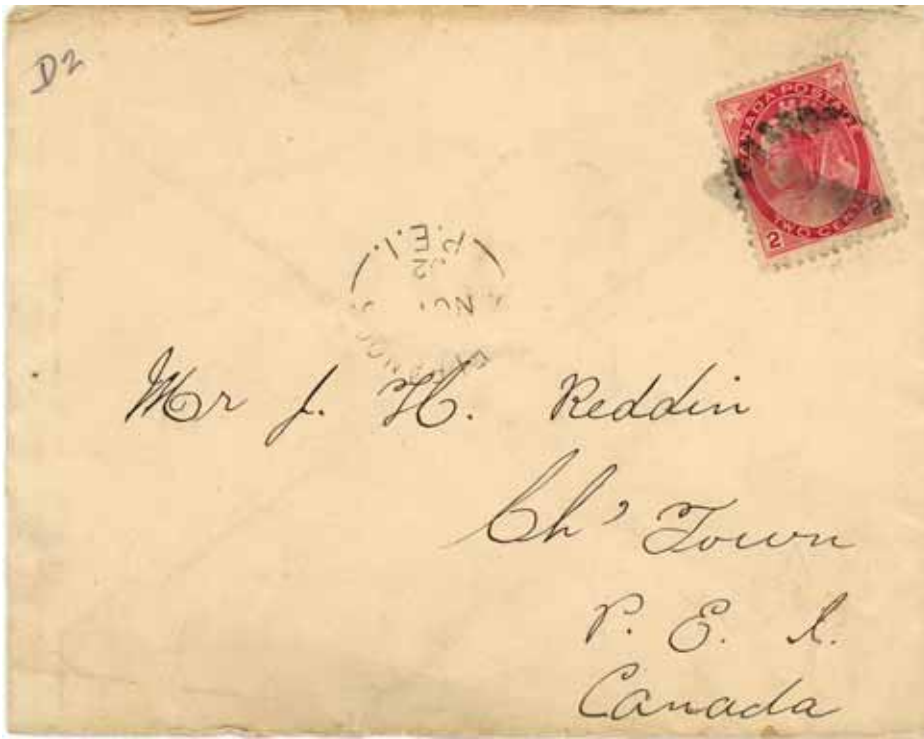 D2
CANADA POSTAGE
TWO CENTS
2 2
P.E.I.
02
NO
Mr J. H. Reddin
Ch' Town
P. E. I.
Canada